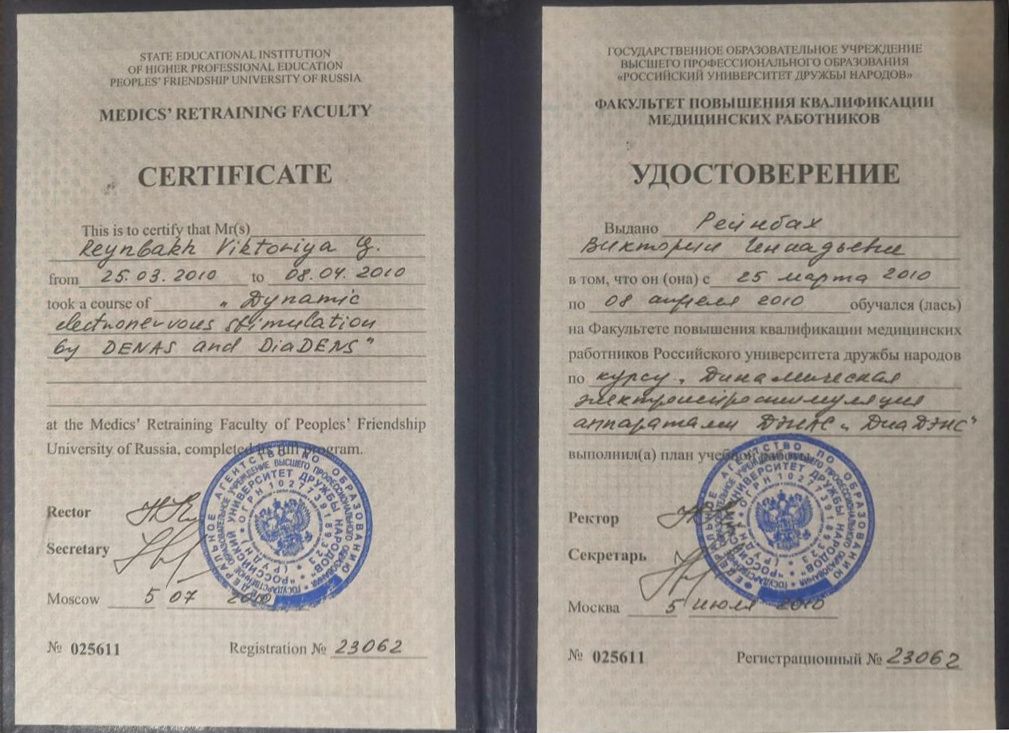 STATE EDUCATIONAL INSTITUTION
OF HIGHER PROFESSIONAL EDUCATION
PEOPLES' FRIENDSHIP UNIVERSITY OF RUSSIA
MEDICS' RETRAINING FACULTY
CERTIFICATE
This is to certify that Mr(s)
Reynbakh Viktoriya G.
from 25.03.2010 to 08.04.2010
took a course of "Dynamic
electronervous stimulation
by DENAS and DiaDENS"
at the Medics' Retraining Faculty of Peoples' Friendship
University of Russia, completed its full program.
Rector
Secretary
Moscow 5 07 2010
№ 025611 Registration № 23062
ГОСУДАРСТВЕННОЕ ОБРАЗОВАТЕЛЬНОЕ УЧРЕЖДЕНИЕ
ВЫСШЕГО ПРОФЕССИОНАЛЬНОГО ОБРАЗОВАНИЯ
«РОССИЙСКИЙ УНИВЕРСИТЕТ ДРУЖБЫ НАРОДОВ»
ФАКУЛЬТЕТ ПОВЫШЕНИЯ КВАЛИФИКАЦИИ
МЕДИЦИНСКИХ РАБОТНИКОВ
УДОСТОВЕРЕНИЕ
Выдано Рейнбах
Виктории Геннадьевне
в том, что он (она) с 25 марта 2010
по 08 апреля 2010 обучался (лась)
на Факультете повышения квалификации медицинских
работников Российского университета дружбы народов
по курсу "Динамическая
электронейростимуляция
аппаратами ДЭНАС и ДиаДЭНС"
выполнил(а) план учебной
Ректор
Секретарь
Москва 5 июля 2010
№ 025611 Регистрационный № 23062